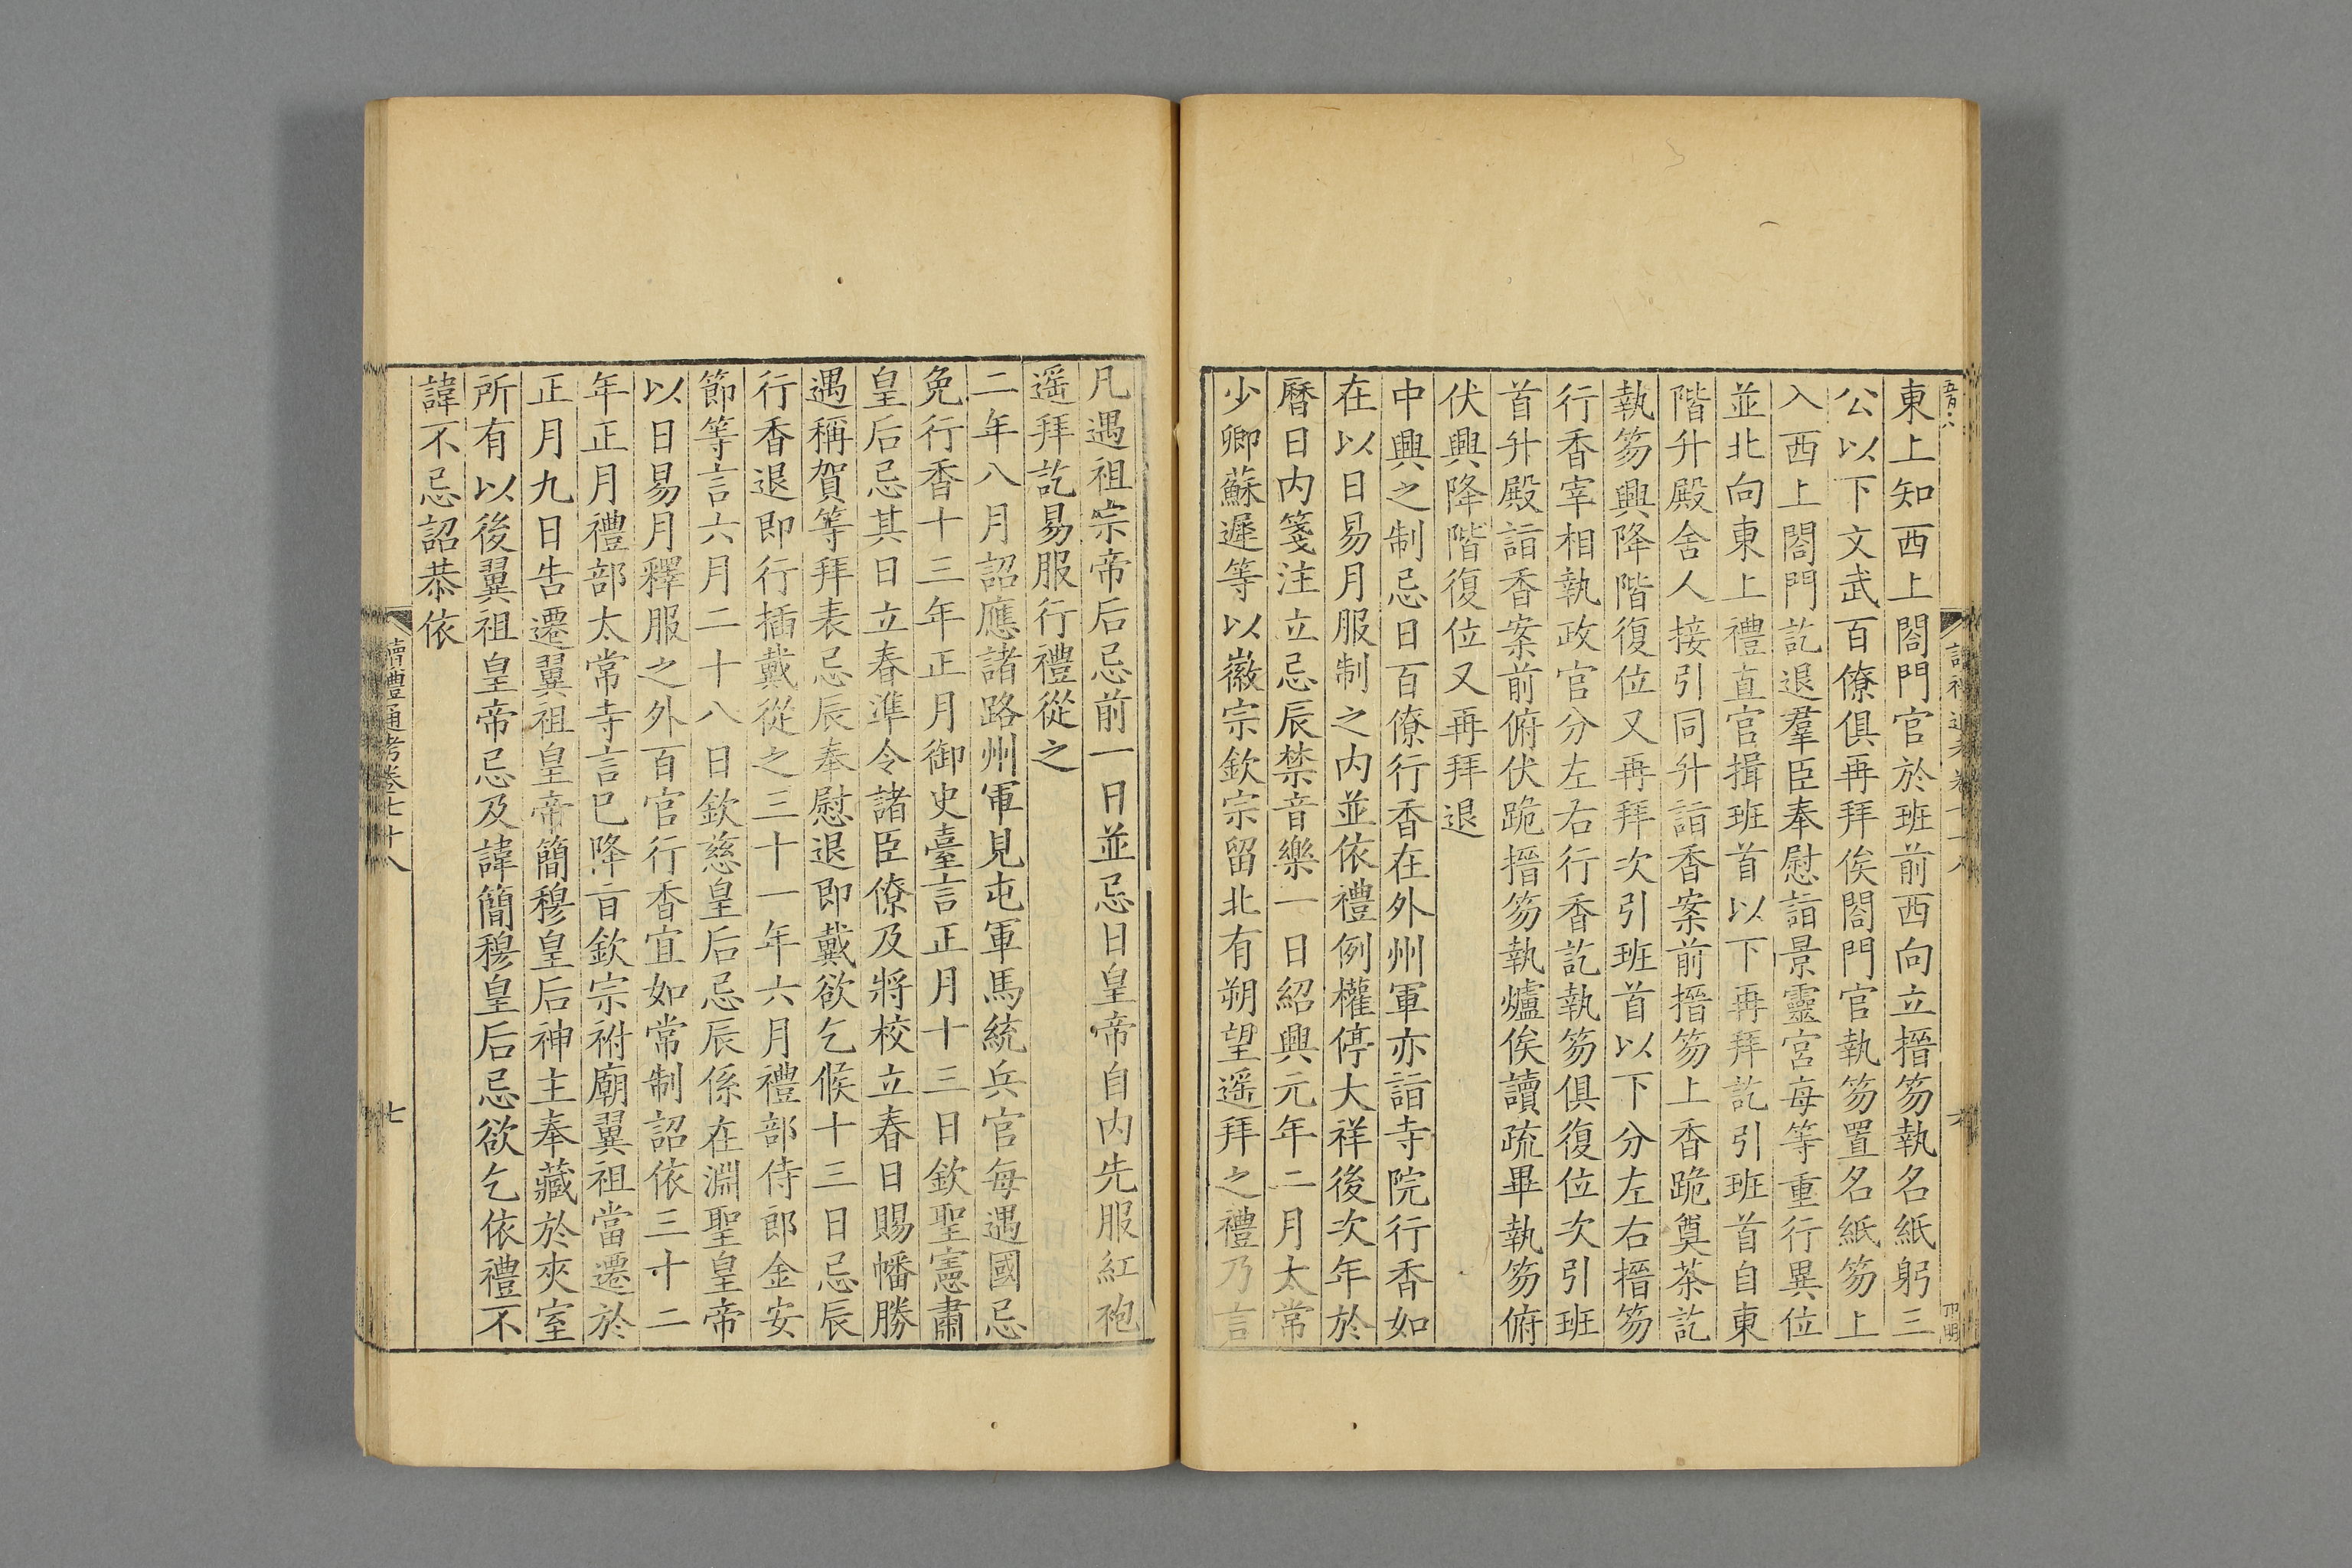 東上知西上閤門官於班前西向立搢笏執名紙躬三
公以下文武百僚俱再拜俟閤門官執笏置名紙笏上
入西上閤門訖退羣臣奉慰詣景靈宮每等重行異位
並北向東上禮直官揖班首以下再拜訖引班首自東
階升殿舍人接引同升詣香案前搢笏上香跪奠茶訖
執笏興降階復位又再拜次引班首以下分左右搢笏
行香宰相執政官分左右行香訖執笏俱復位次引班
首升殿詣香案前俯伏跪搢笏執爐俟讀疏畢執笏俯
伏興降階復位又再拜退
中興之制忌日百僚行香在外州軍亦詣寺院行香如
在以日易月服制之內並依禮例權停大祥後次年於
曆日內箋注立忌辰禁音樂一日紹興元年二月太常
少卿蘇遲等以徽宗欽宗留北有朔望遥拜之禮乃言
凡遇祖宗帝后忌前一日並忌日皇帝自内先服紅袍
遥拜訖易服行禮從之
二年八月詔應諸路州軍見屯軍馬統兵官每遇國忌
免行香十三年正月御史臺言正月十三日欽聖憲肅
皇后忌其日立春準令諸臣僚及將校立春日賜幡勝
遇稱賀等拜表忌辰奉慰退即戴欲乞候十三日忌辰
行香退即行插戴從之三十一年六月禮部侍郎金安
節等言六月二十八日欽慈皇后忌辰係在淵聖皇帝
以日易月釋服之外百官行香宜如常制詔依三十二
年正月禮部太常寺言已降旨欽宗祔廟翼祖當遷於
正月九日告遷翼祖皇帝簡穆皇后神主奉藏於夾室
所有以後翼祖皇帝忌及諱簡穆皇后忌欲乞依禮不
諱不忌詔恭依
讀禮通考卷七十八
七